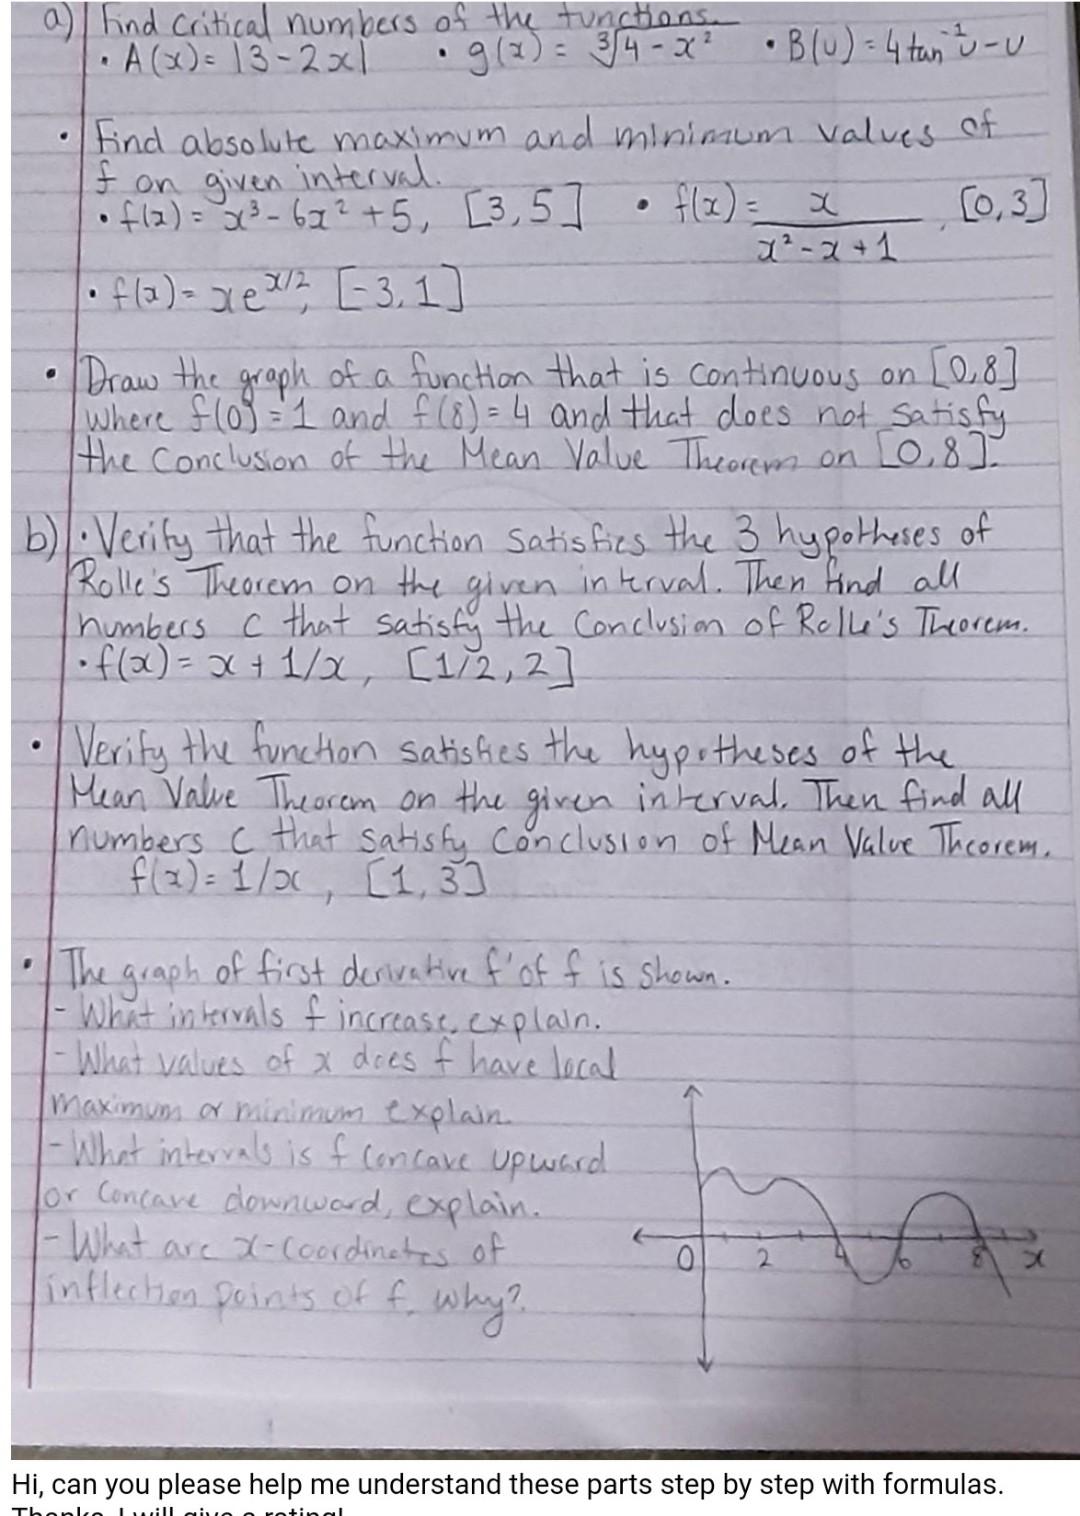 a) Find critical numbers of the functions.
• A(x) = |3-2x| • g(x) = ∛4-x² • B(u) = 4tan⁻¹u-u
• Find absolute maximum and minimum values of
f on given interval.
• f(x) = x³-6x²+5, [3,5] • f(x) = x/(x²-x+1), [0,3]
• f(x) = xe^(x/2), [-3,1]
• Draw the graph of a function that is continuous on [0,8]
where f(0)=1 and f(8)=4 and that does not satisfy
the Conclusion of the Mean Value Theorem on [0,8].
b) • Verify that the function satisfies the 3 hypotheses of
Rolle's Theorem on the given interval. Then find all
numbers c that satisfy the Conclusion of Rolle's Theorem.
• f(x) = x+1/x, [1/2,2]
• Verify the function satisfies the hypotheses of the
Mean Value Theorem on the given interval. Then find all
numbers c that satisfy Conclusion of Mean Value Theorem.
f(x) = 1/x, [1,3]
• The graph of first derivative f' of f is shown.
- What intervals f increase, explain.
- What values of x does f have local
maximum or minimum explain.
- What intervals is f concave upward
or concave downward, explain.
- What are x-coordinates of
inflection points of f, why?
0 2 4 6 8 x
Hi, can you please help me understand these parts step by step with formulas.
Thanks, I will give a rating!